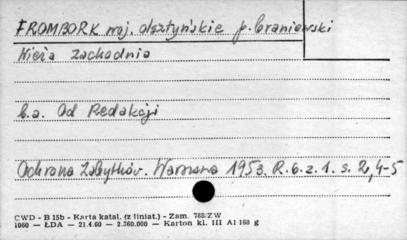 FROMBORK woj. olsztyńskie p. braniewski
Wieża zachodnia
b.a. Od Redakcji
Ochrona Zabytków. Warszawa 1953. R. 6. z. 1. s. 2, 4-5
CWD - B 15b - Karta katal. (z liniat.) - Zam. 768/ZW
1000 — ŁDA — 21.4.60 — 2.360.000 — Karton kl. III A1 160 g